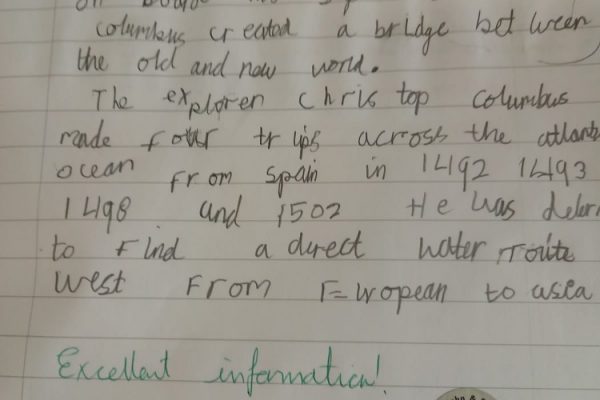 columbus created a bridge between
the old and new world.
The explorer Chris top columbus
made four trips across the atlant
ocean From Spain in 1492 1493
1498 and 1502 He was deter
to Find a direct water route
west From European to asea
Excellent information!